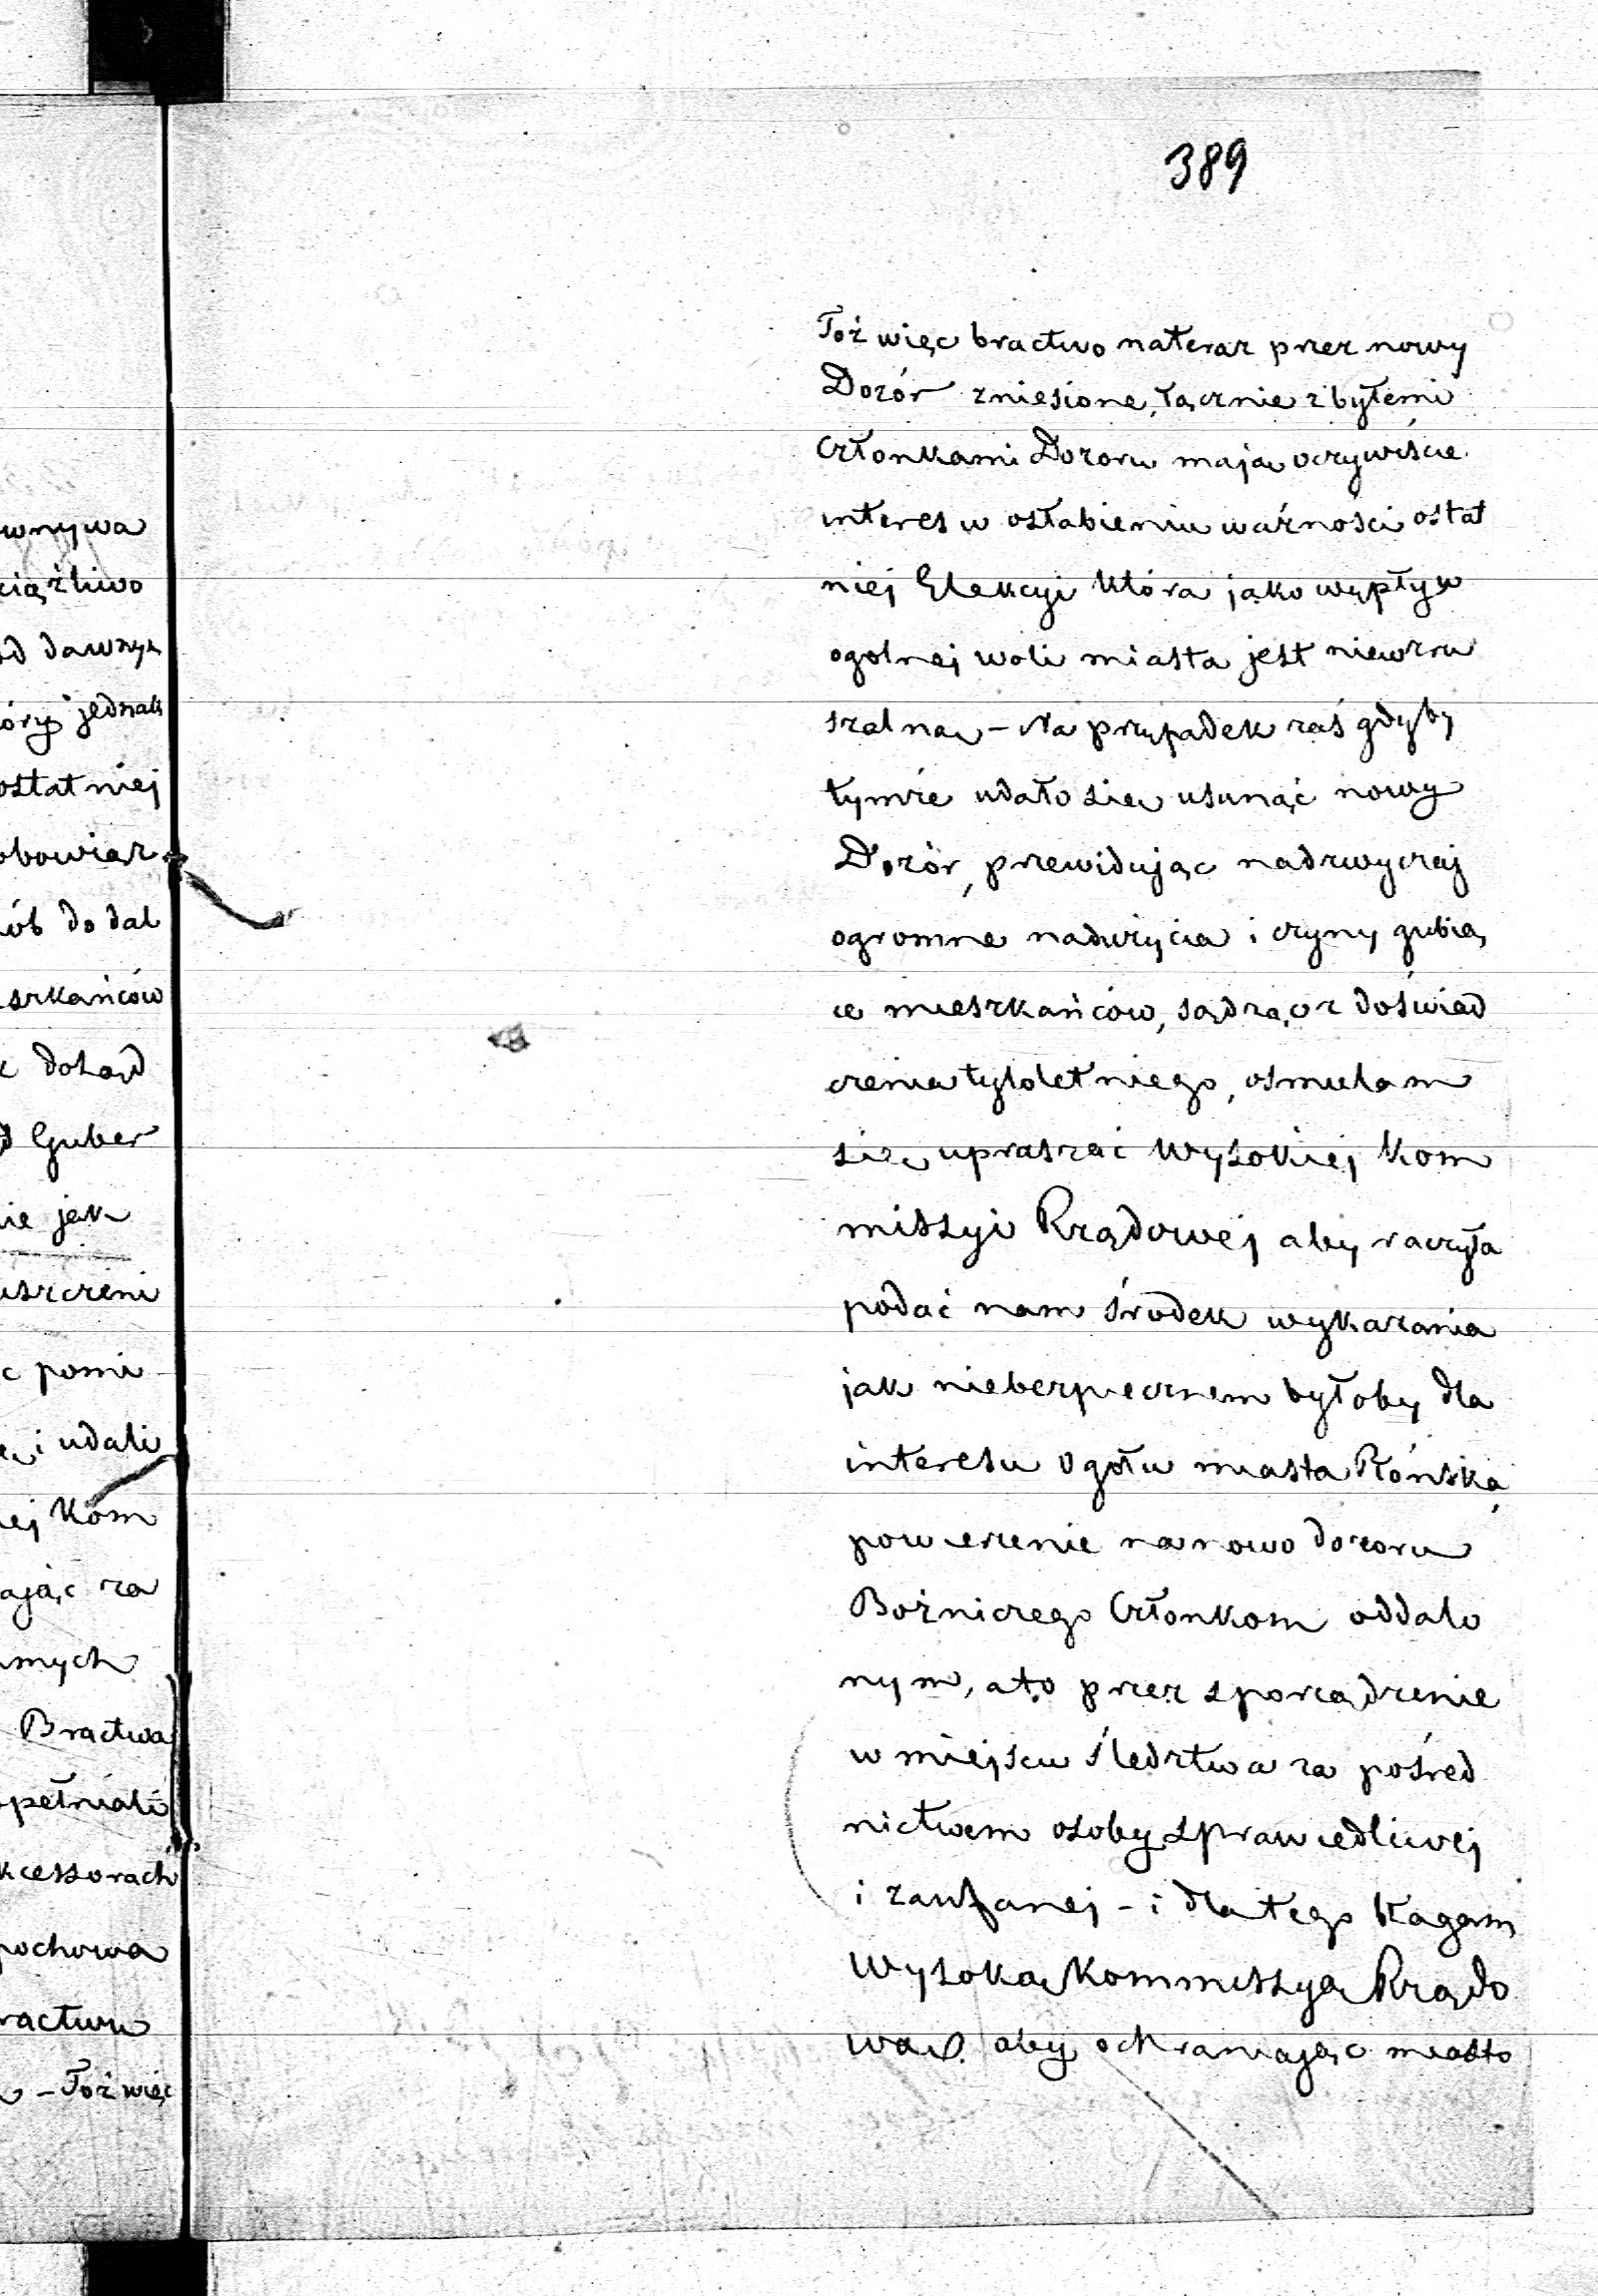 389
Toż więc bractwo nateraz przez nowy
Dozór zniesione, łącznie z byłemi
Członkami Dozoru mają oczywiście
interes w osłabieniu ważności ostat
niej Elekcyi która jako wypływ
ogolnej woli miasta jest niewzru
szalną – Na przypadek zaś gdyby
tymże udało się usunąć nowy
Dozór, przewidując nadzwyczaj
ogromne nadużycia i czyny gubią
ce mieszkańców, sądząc z doświad
czenia tyloletniego, osmielam
się upraszać Wysokiej Kom
missyi Rządowej aby raczyła
podać nam środek wykazania
jak niebezpiecznem byłoby dla
interesu ogołu miasta Płońska,
powierzenie nanowo dozoru
Bożniczego Członkom oddalo
nym, a to przez sporządzenie
w miejscu śledztwa za pośred
nictwem osoby sprawiedliwej
i zaufanej – i dla tego błagam
Wysoką Kommissyą Rządo
wą aby ochraniając miasto
wnywa
ciążliwo
od dawnych
óry jednak
ostatniej
obowiąz
ób do dal
szkańców
dotąd
Guber
ie jak
uszczeni
c pomi
i udali
ej Kom
ając za
mych
Bractwa
pełniali
kcessorach
pochowa
ractwu
– Toż więc